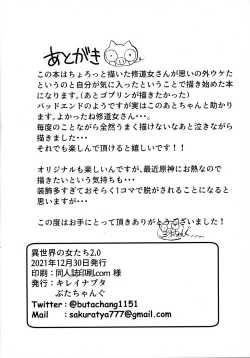 あとがき
この本はちょろっと描いた修道女さんが思いの外ウケた
というのと自分が気に入ったということで描き始めた本
になります。(あとゴブリンが描きたかった)
バッドエンドのようですが実はこのあとちゃんと助かり
ます。よかったね修道女さん・・・。
毎度のことながら全然うまく描けないなあと泣きながら
描きました・・・
それでも楽しんで頂けると嬉しいです！！
オリジナルも楽しいんですが、最近原神にお熱なので
描きたいという気持ちも・・・
装飾多すぎておそらく1コマで脱がされることになると
思いますが・・・
この度はお手にとって頂きありがとうございました！
異世界の女たち2.0
2021年12月30日発行
印刷：同人誌印刷.com 様
発行：キレイナブタ
ぶたちゃんぐ
Twitter：@butachang1151
Mail　：sakuratya777@gmail.com